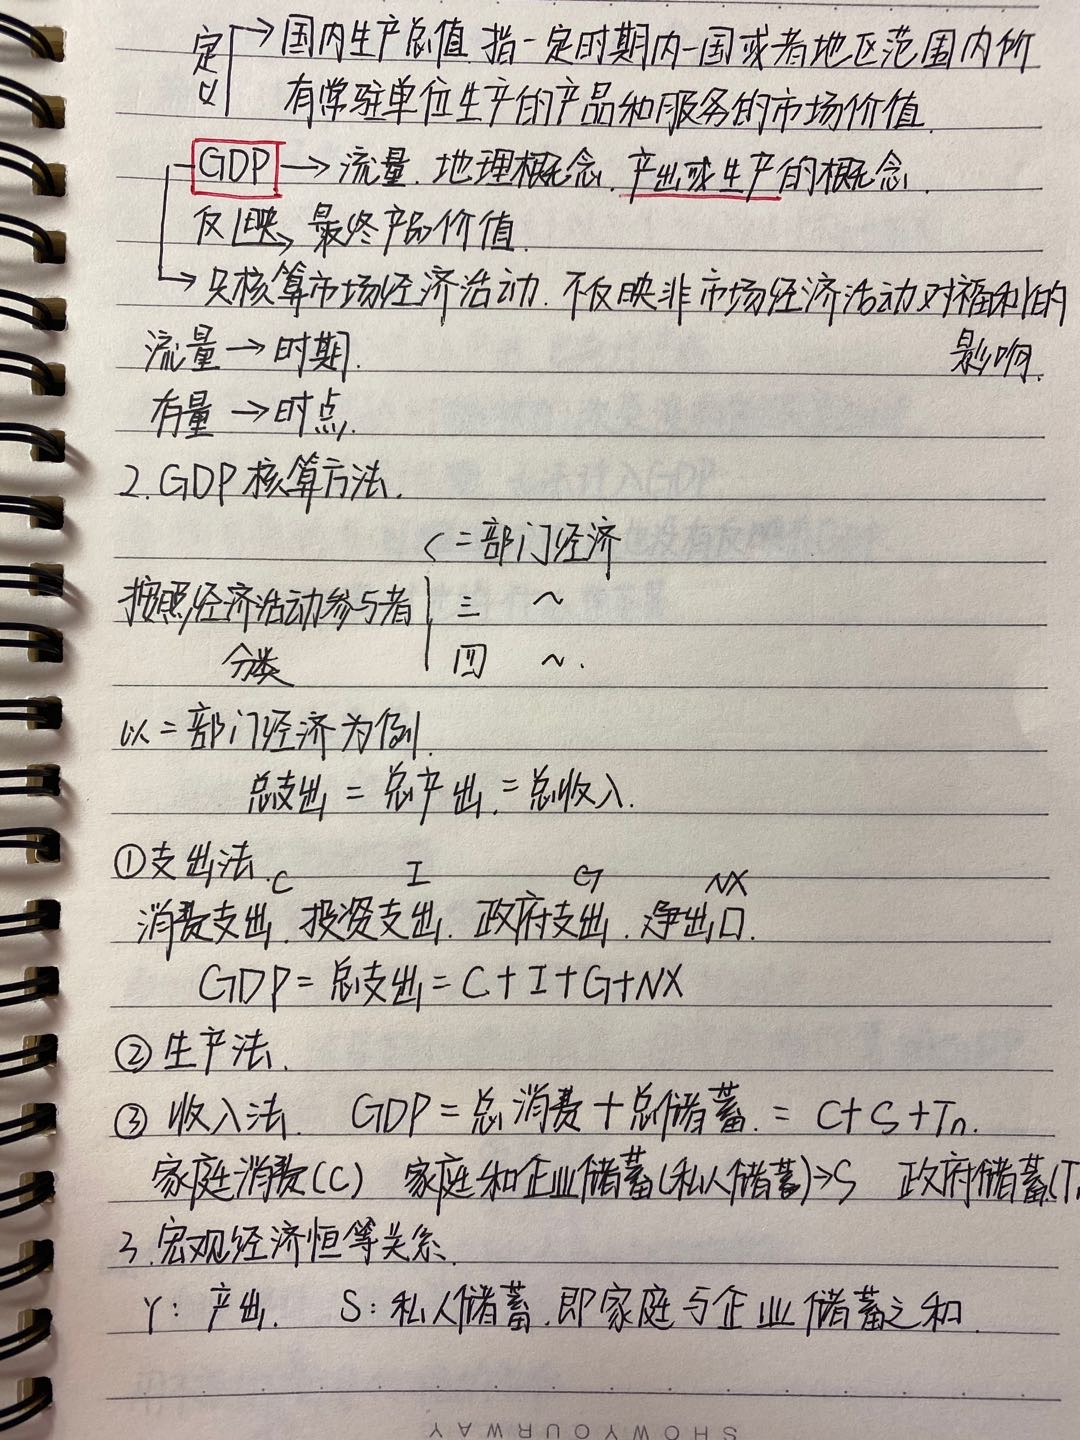 定义 → 国内生产总值 指一定时期内一国或者地区范围内所
有常驻单位生产的产品和服务的市场价值.
GDP → 流量. 地理概念. 产出或生产的概念.
反映 → 最终产品价值.
→ 只核算市场经济活动. 不反映非市场经济活动对福利的
影响.
流量 → 时期.
存量 → 时点.
2. GDP 核算方法.
二部门经济
按照经济活动参与者 三 ~
分类 四 ~.
以二部门经济为例.
总支出 = 总产出 = 总收入.
①支出法.
C I G NX
消费支出. 投资支出. 政府支出. 净出口.
GDP = 总支出 = C + I + G + NX
② 生产法.
③ 收入法. GDP = 总消费 + 总储蓄. = C + S + Tn.
家庭消费(C) 家庭和企业储蓄(私人储蓄)→S 政府储蓄(T
3. 宏观经济恒等关系.
Y: 产出. S: 私人储蓄. 即家庭与企业储蓄之和.
SHOWYOURWAY